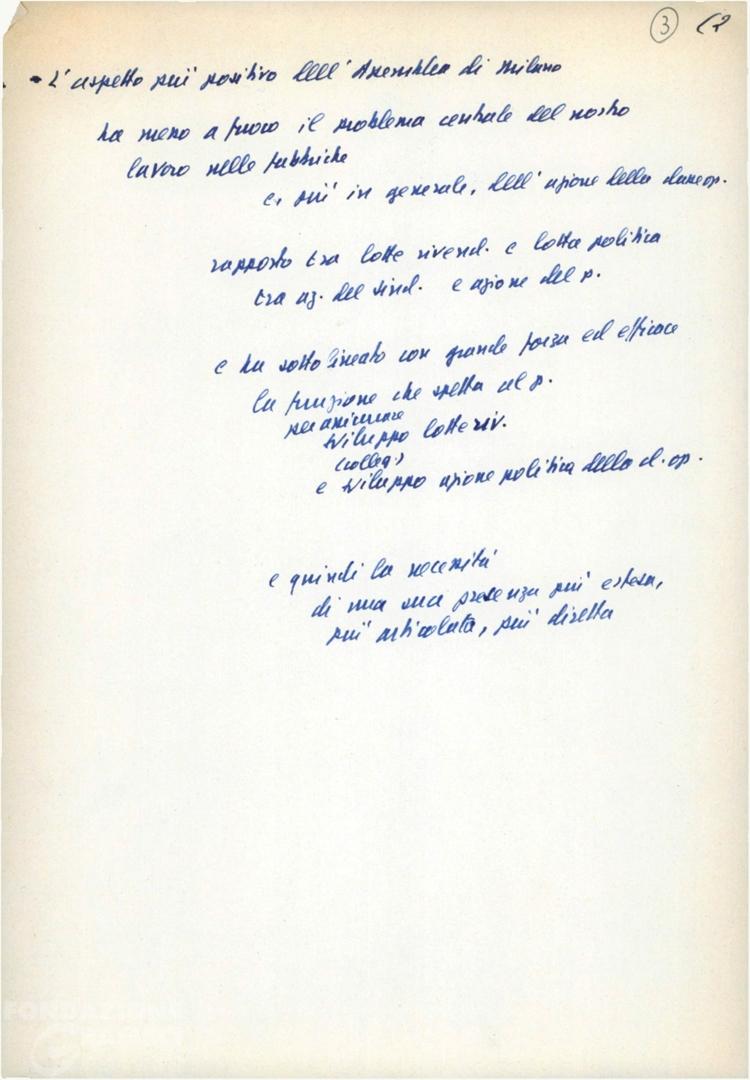 ③
- L'aspetto più positivo dell'Assemblea di Milano
ha messo a fuoco il problema centrale del nostro
lavoro nelle fabbriche
e, più in generale, dell'azione della classe op.
rapporto tra lotte rivend. e lotta politica
tra az. del sind. e azione del p.
e ha sottolineato con grande forza ed efficace
la funzione che spetta al p.
per assicurare
sviluppo lotte riv.
(colleg.)
e sviluppo azione politica della cl. op.
e quindi la necessità
di una sua presenza più estesa,
più articolata, più diretta
FONDAZIONE